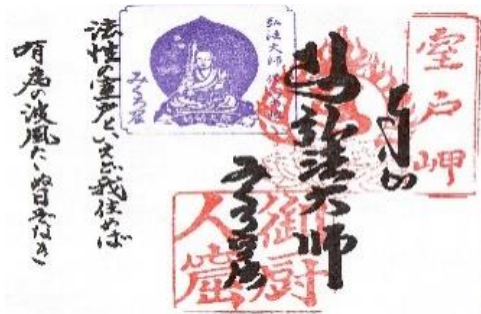 室戸岬
弘法大師
御厨
人窟
弘法大師
みくろ窟
法性の室戸といへど我住めば
有為の波風たゝぬ日ぞなき